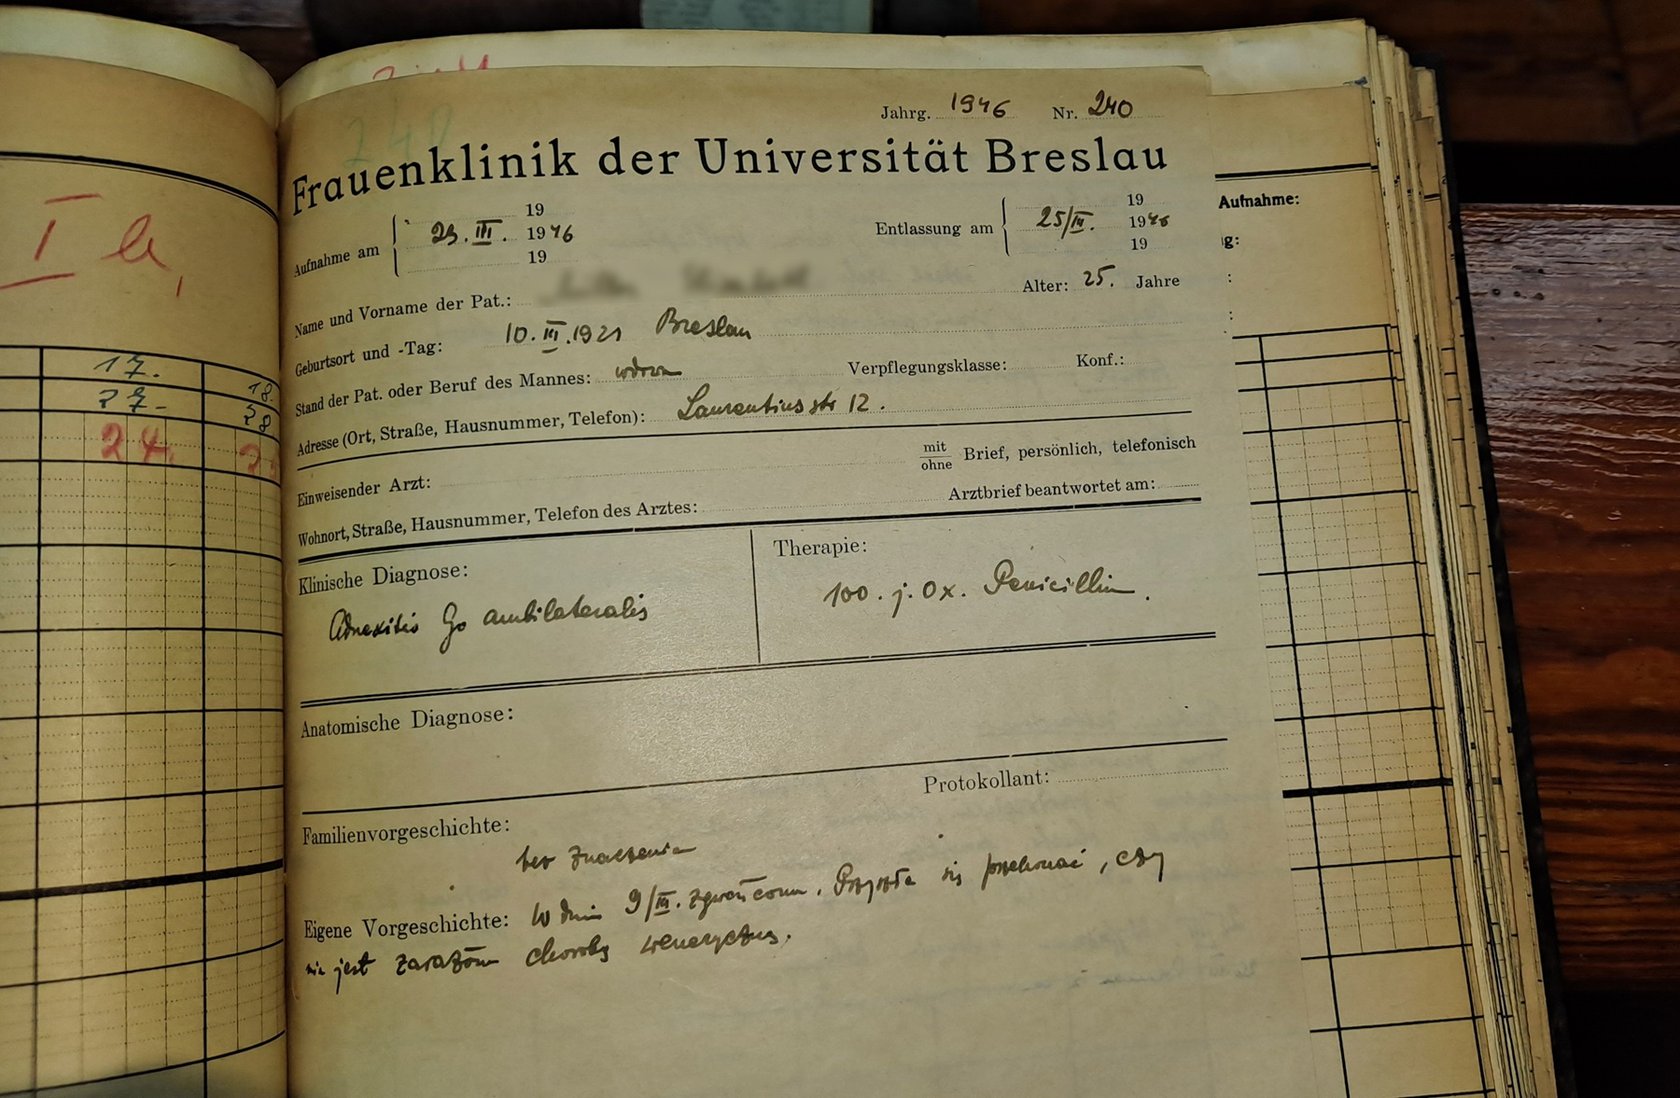 Jahrg. 1946 Nr. 240
240
Frauenklinik der Universität Breslau
Aufnahme am
19
23. III. 1946
19
Entlassung am
19
25/III. 1946
19
Name und Vorname der Pat.:
Alter: 25. Jahre
Geburtsort und -Tag: 10. III. 1921 Breslau
Stand der Pat. oder Beruf des Mannes: wdowa Verpflegungsklasse: Konf.:
Adresse (Ort, Straße, Hausnummer, Telefon): Laurentiusstr 12.
Einweisender Arzt: mit ohne Brief, persönlich, telefonisch
Wohnort, Straße, Hausnummer, Telefon des Arztes: Arztbrief beantwortet am:
Klinische Diagnose:
Adnexitis Go ambilateralis
Therapie:
100. j. Ox. Penicillin.
Anatomische Diagnose:
Protokollant:
Familienvorgeschichte:
bez znaczenia
Eigene Vorgeschichte: W dniu 9/III. zgwałcona. Przyszła się przekonać, czy
nie jest zarażona chorobą weneryczną.
I a,
17.
18.
27.
28
24.
Aufnahme:
g:
:
: